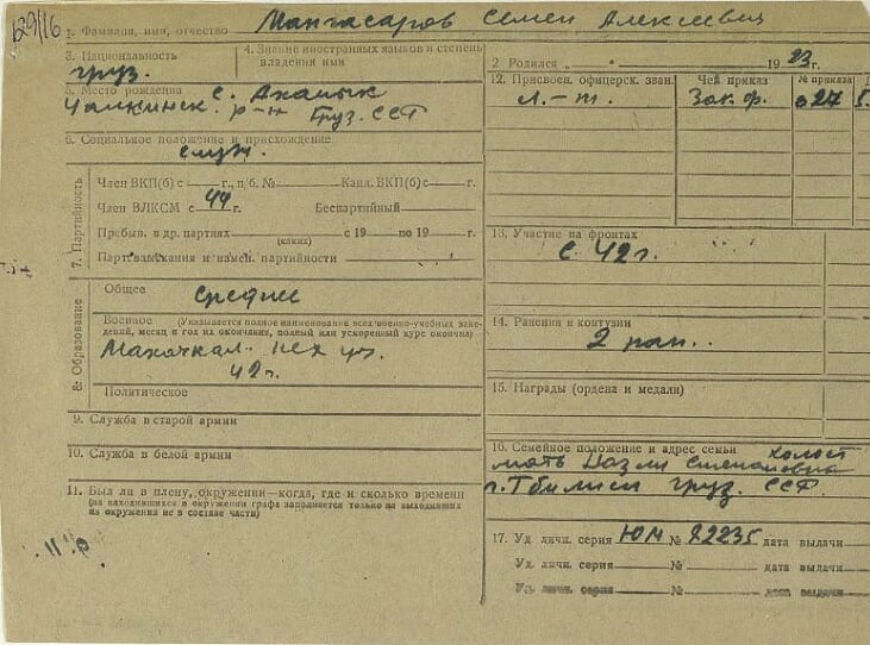 129/16
1. Фамилия, имя, отчество Мангасаров Семен Алексеевич
3. Национальность груз.
4. Знание иностранных языков и степень владения ими
2 Родился „ “ 1923 г.
5. Место рождения с. Ахалык
Цалкинск. р-н Груз. ССР
6. Социальное положение и происхождение
служ.
7. Партийность
Член ВКП(б) с г., п/б. № Канд. ВКП(б) с г.
Член ВЛКСМ с 44 г. Беспартийный
Пребыв. в др. партиях с 19 по 19 г.
(каких)
Партвзыскания и измен. партийности
8. Образование
Общее среднее
Военное (Указывается полное наименование всех военно-учебных заведений, месяц и год их окончания, полный или ускоренный курс окончил)
Махачкал. пех уч.
42 г.
Политическое
9. Служба в старой армии
10. Служба в белой армии
11. Был ли в плену, окружении—когда, где и сколько времени
(на находившихся в окружении графа заполняется только на выходивших
из окружения не в составе части)
12. Присвоен. офицерск. зван. Чей приказ № приказа
л.-т. Зак. ф. 027
13. Участие на фронтах
с 42 г.
14. Ранения и контузии
2 ран.
15. Награды (ордена и медали)
16. Семейное положение и адрес семьи холост
мать Назли Степановна
г. Тбилиси груз. ССР.
17. Уд личн. серия ЮМ № 82235 дата выдачи
Уд личн. серия № дата выдачи
Уд личн. серия № дата выдачи